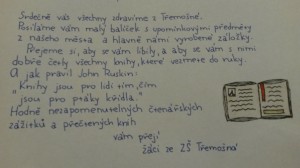 Srdečně vás všechny zdravíme z Třemošné.
Posíláme vám malý balíček s upomínkovými předměty
z našeho města a hlavně námi vyrobené záložky.
Přejeme si, aby se vám líbily, a aby se vám s nimi
dobře četly všechny knihy, které vezmete do ruky.
A jak pravil John Ruskin:
„Knihy jsou pro lidi tím, čím
jsou pro ptáky křídla."
Hodně nezapomenutelných čtenářských
zážitků a přečtených knih
vám přejí
žáci ze ZŠ Třemošná